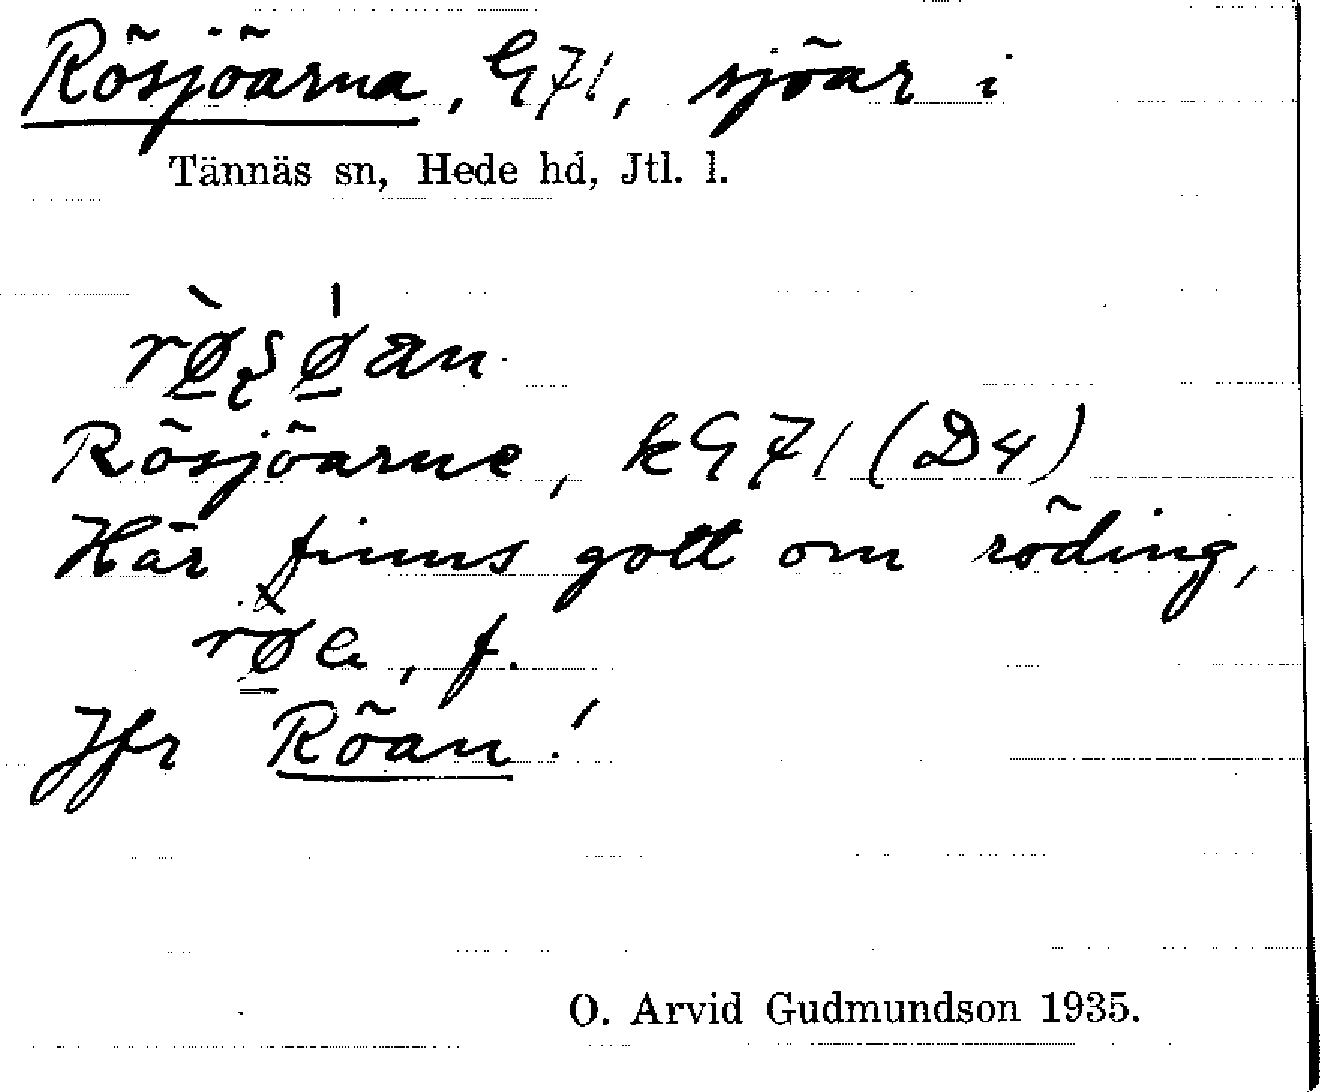 Rösjöarna, G71, sjöar i
Tännäs sn, Hede hd, Jtl. l.
Rösjöarne, kG71 (D4)
Här finns gott om röding,
f.
Jfr Röan!
O. Arvid Gudmundson 1935.